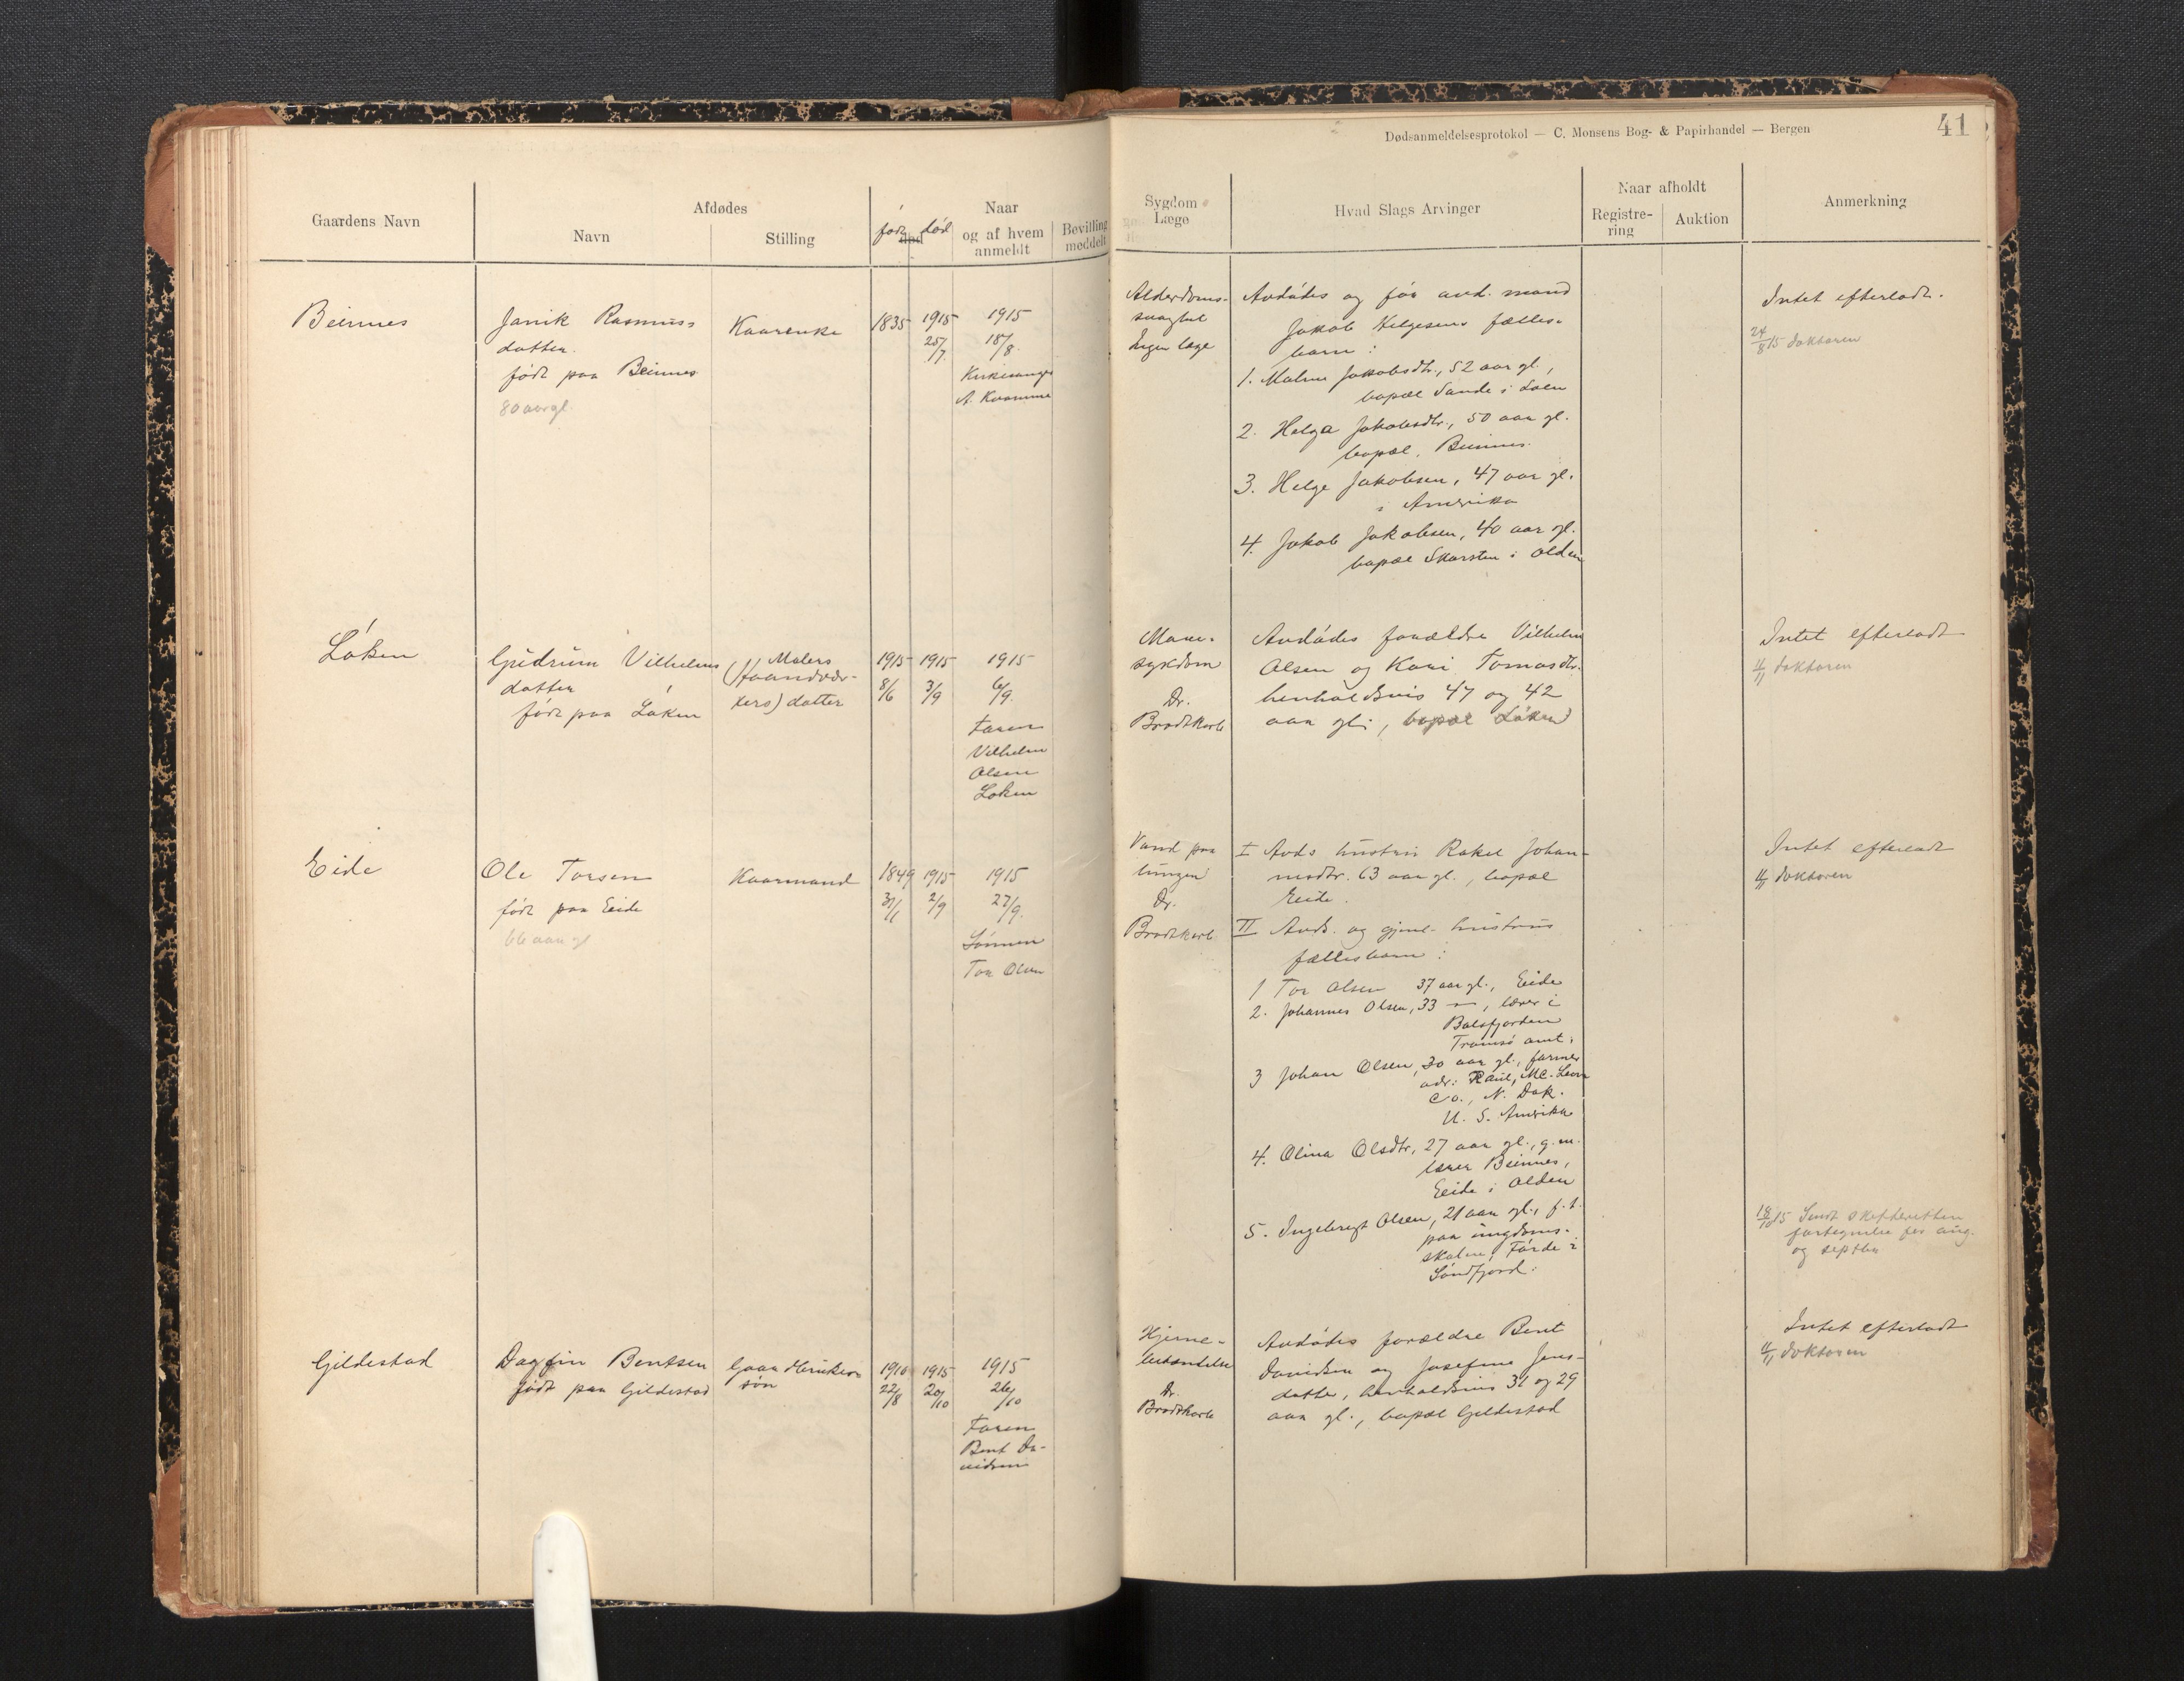 Dødsanmeldelsesprotokol — C. Monsens Bog- & Papirhandel — Bergen
41
Gaardens Navn
Afdødes
Navn
Stilling
født
død
Naar
og af hvem
anmeldt
Bevilling
meddelt
Sygdom
Læge
Hvad Slags Arvinger
Naar afholdt
Registre-
ring
Auktion
Anmerkning
Beinnes
Janik Rasmus-
datter.
født paa Beinnes
80 aar gl.
Kaarenke
1835
1915
25/7
1915
18/8
Kirkesanger
A. Kvamme
Alderdoms-
svaghet
Ingen læge
Avdødes og før avd. mand
Jakob Helgesens fælles-
barn:
1. Malene Jakobsdtr., 52 aar gl.,
bopæl Sande i Loen
2. Helga Jakobsdtr., 50 aar gl.
bopæl, Beinnes.
3. Helge Jakobsen, 47 aar gl.
i Amerika
4. Jakob Jakobsen, 40 aar gl.
bopæl Skarsten i Olden
Intet efterladt.
24/8 15 doktoren
Løken
Gudrun Vilhelms
datter
født paa Løken
Malers
(Haandver-
kers) datter
1915
8/6
1915
3/9
1915
6/9.
Faren
Vilhelm
Olsen
Løken
Mave-
sykdom
Dr.
Bradtkorb
Avdødes forældre Vilhelm
Olsen og Kari Tomasdtr.
henholdsvis 47 og 42
aar gl., bopæl Løken
Intet efterladt
4/11 doktoren
Eide
Ole Torsen
født paa Eide
66 aar gl
Kaarmand
1849
31/1
1915
2/9
1915
27/9.
Sønnen
Tor Olsen
Vand paa
lungen
Dr.
Bradtkorb
I Avds hustru Rakel Johan-
nesdtr. 63 aar gl., bopæl
Eide.
II Avds. og gjenl. hustrus
fællesbarn:
1 Tor Olsen 37 aar gl., Eide
2. Johannes Olsen, 33 —, lærer i
Balsfjorden
Tromsø amt.
3 Johan Olsen, 30 aar gl., farmer
adr: Raub, Mc. Lean
Co., N. Dak.
U. S. Amerika
4. Olina Olsdtr, 27 aar gl., g. m.
lærer Beinnes,
Eide i Olden
5. Ingebrigt Olsen, 21 aar gl., f. t.
paa ungdoms-
skolen, Førde i
Søndfjord.
Intet efterladt
4/11 doktoren
18/10 15 Sendt skifteretten
fortegnelse for aug.
og septbr
Gildestad
Dagfin Bentsen
født paa Gildestad
Gaardbrukers
søn
1910
22/8
1915
20/10
1915
26/10
Faren
Bent Da-
vidsen
Hjerne-
betændelse
Dr.
Bradtkorb
Avdødes forældre Bent
Davidsen og Josefine Jens-
datter, henholdsvis 31 og 29
aar gl., bopæl Gildestad
Intet efterladt
4/11 doktoren